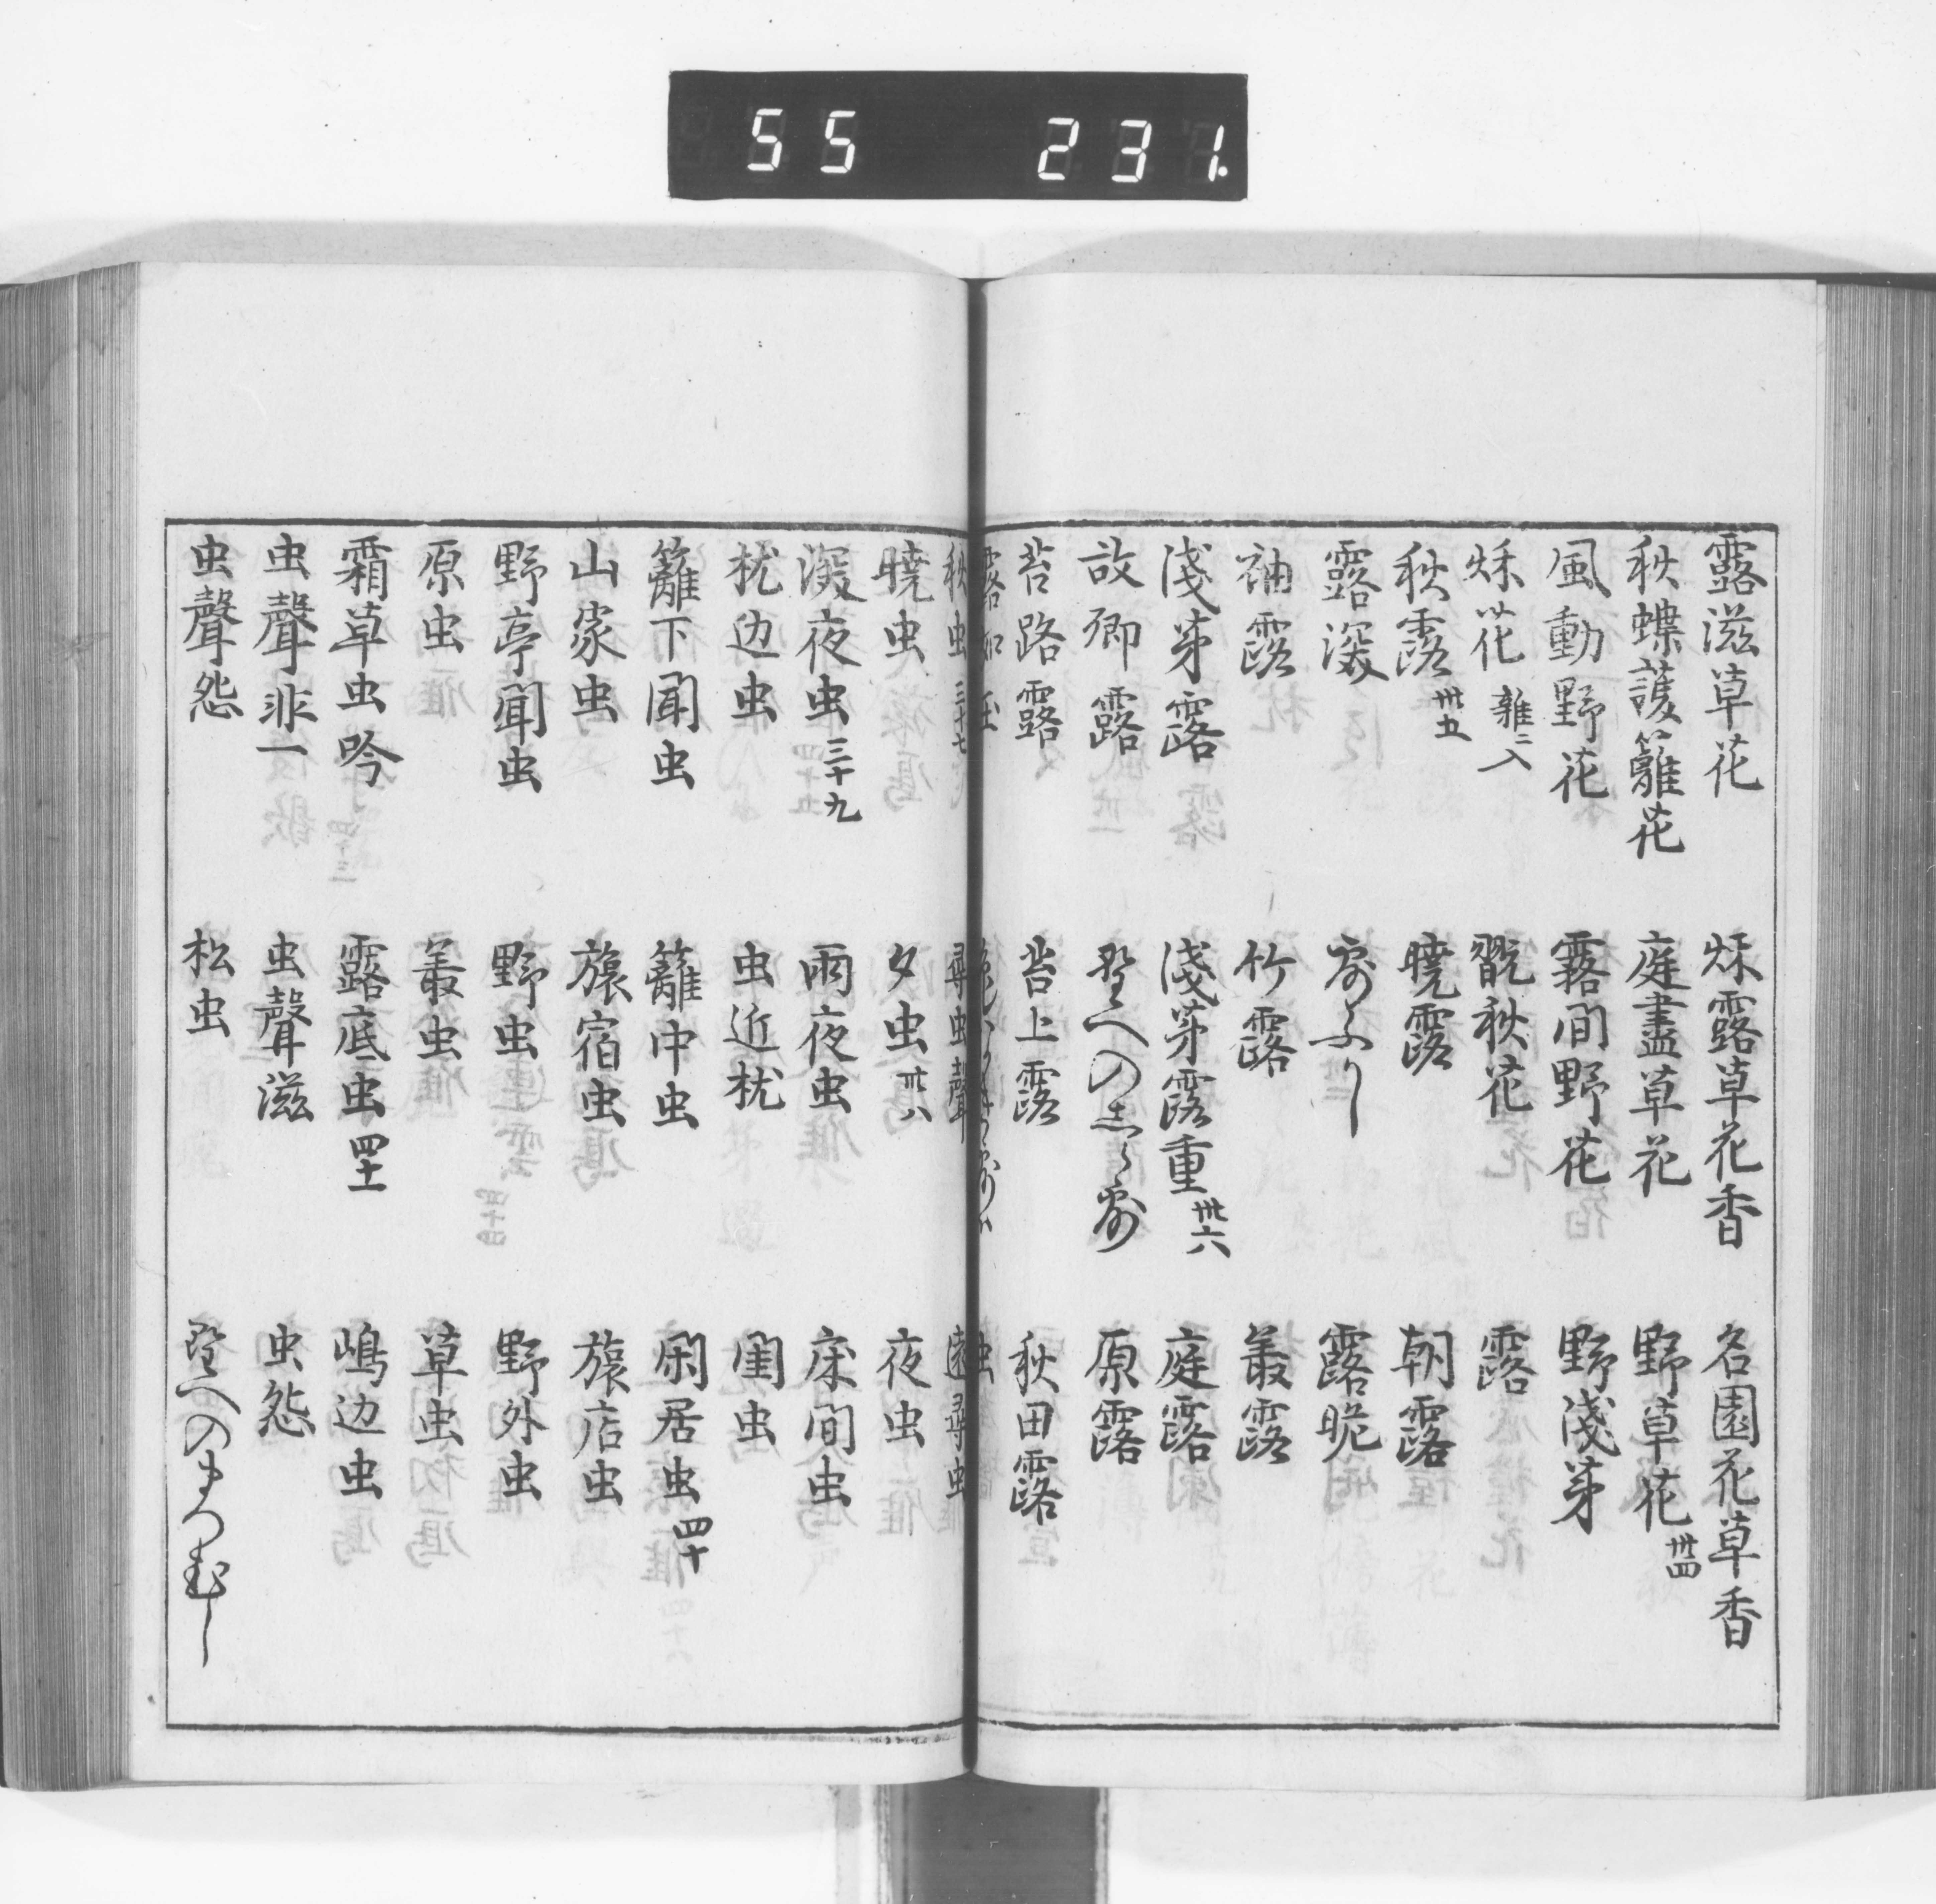 55 231.
露滋草花 秌露草花香 名園花草香
秋蝶護籬花 庭盡草花 野草花 卅四
風動野花 霧間野花 野淺茅
秌花 雑ニ入 翫秋花 露
秋露 卅五 曉露 朝露
露深 露ふかし 露脆
袖露 竹露 叢露
淺茅露 淺茅露重 卅六 庭露
故郷露 野への露 原露
苔路露 苔上露 秋田露
露如玉
秋虫 三十七 尋虫聲 遠尋虫
曉虫 夕虫 卅八 夜虫
深夜虫 三十九 雨夜虫 床間虫
枕边虫 虫近枕 閨虫
籬下聞虫 籬中虫 閑居虫 四十
山家虫 旅宿虫 旅店虫
野亭聞虫 野虫 野外虫
原虫 叢虫 草虫
霜草虫吟 露底虫 四十一 嶋边虫
虫聲非一 虫聲滋 虫怨
虫聲怨 松虫 野へのまつむし